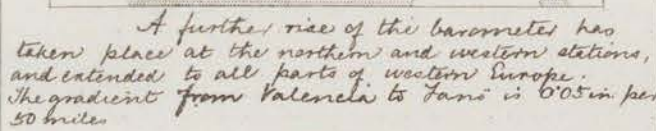 A further rise of the barometer has
taken place at the northern and western stations,
and extended to all parts of western Europe.
The gradient from Valencia to Fanö is 0.05 in. per
50 miles